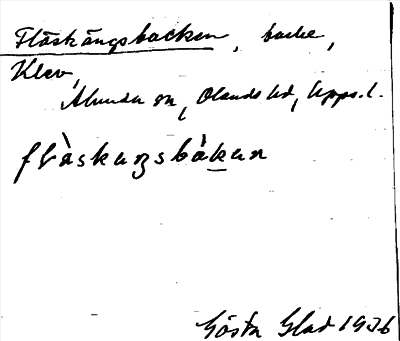 Fläskängsbacken, backe,
Klev,
Alunda sn, Olands hd, Upps. l.
flàskæŋsbàkan
Gösta Glad 1936